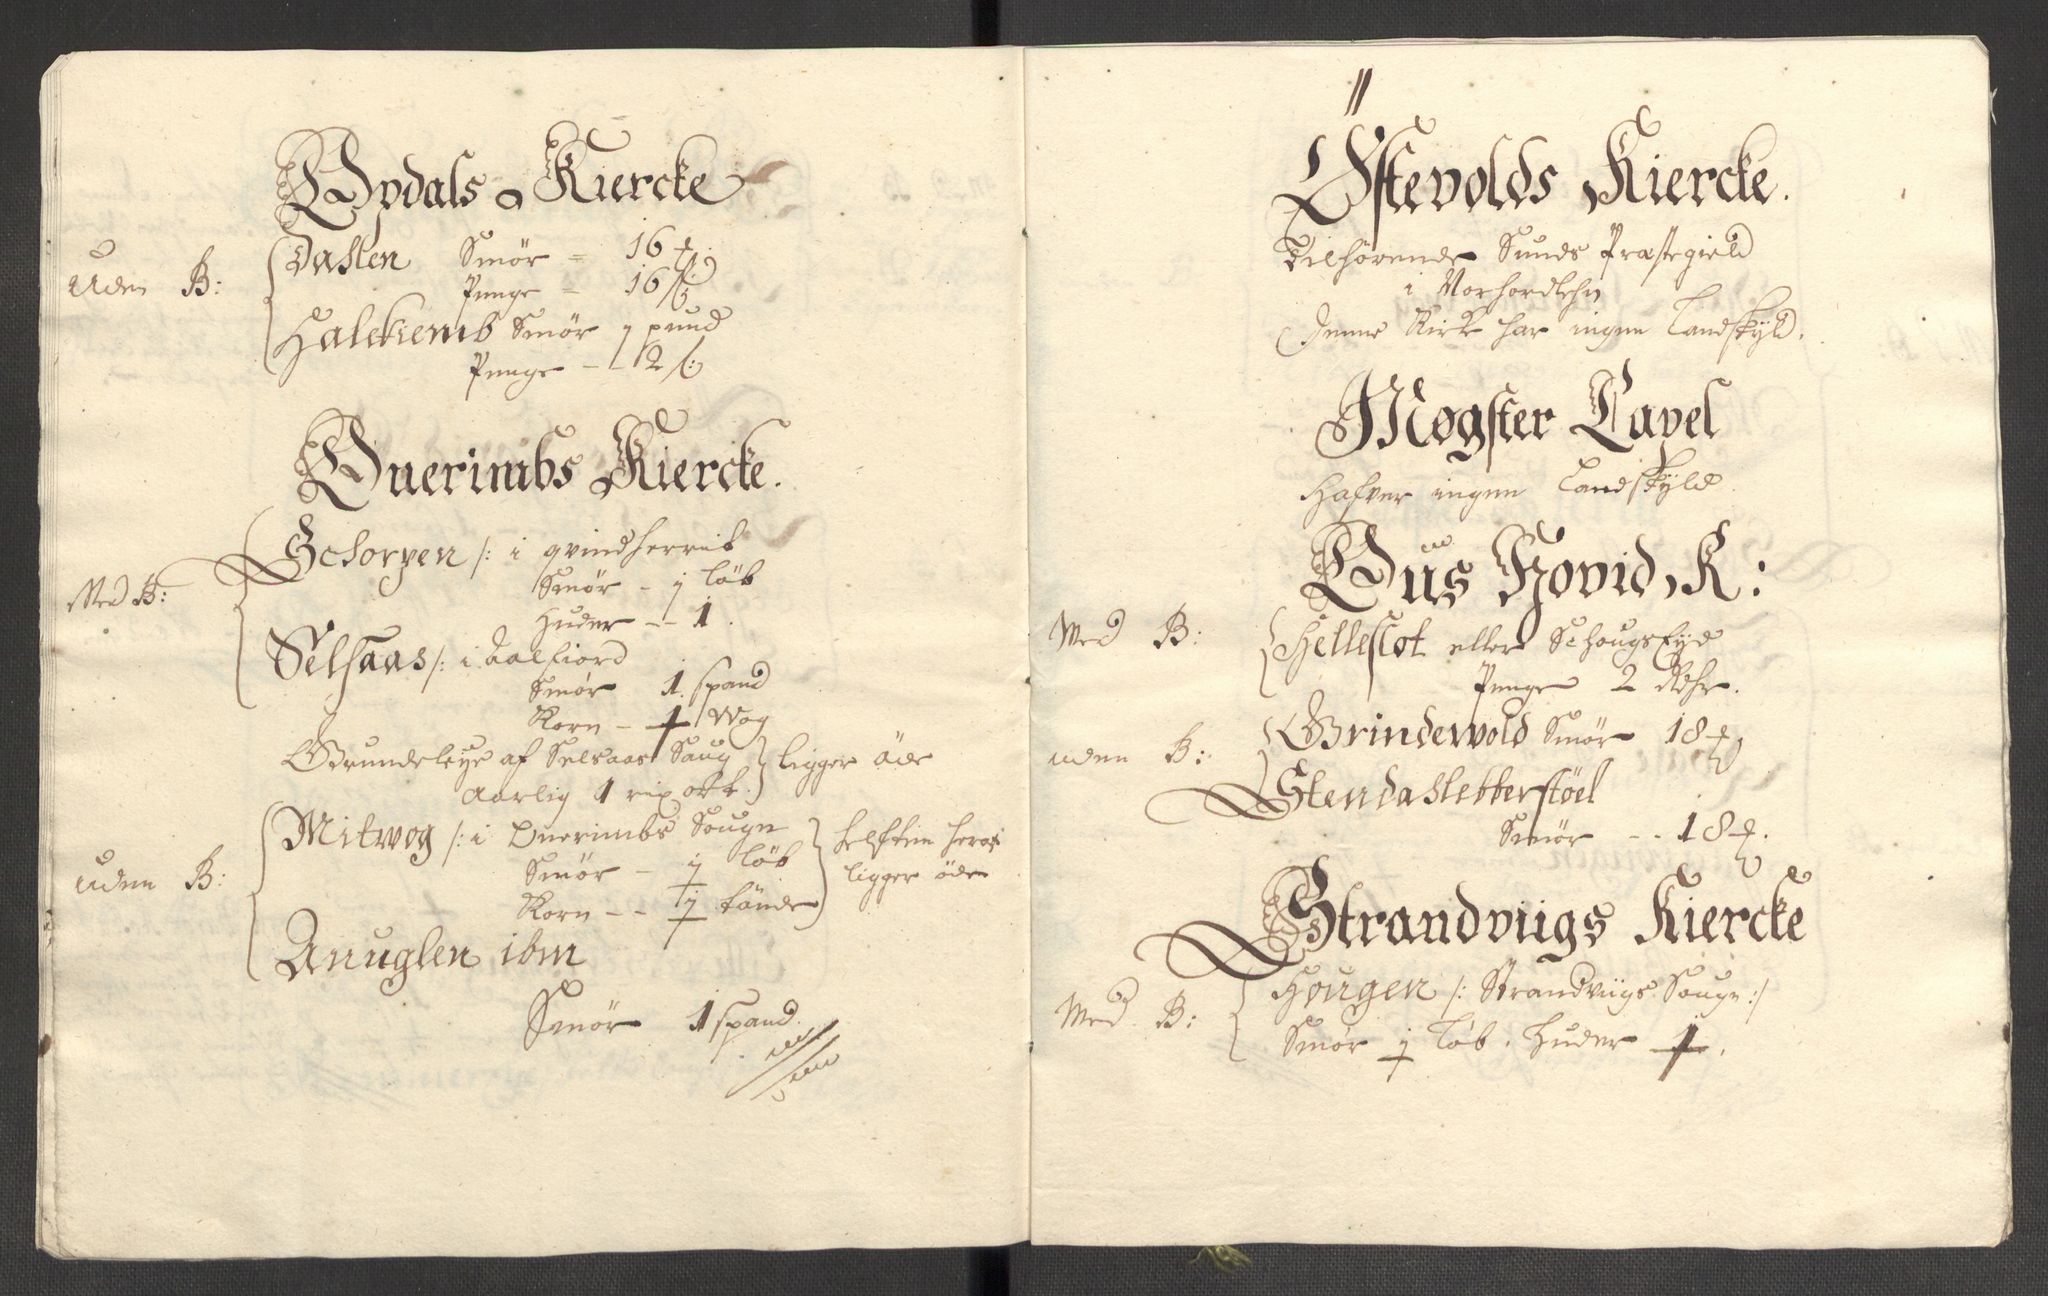 Opdals Kiercke
Uden B: Dahlen Smör = 16 ℔
Penge = 16 ß
Halekiemb Smör j pund
Penge -- 12 ß
Querimbs Kiercke.
Med B: Schorpen /: i qvindherrit
Smör - j löb
Huder -- 1.
Selsaas /: i aalfiord
Smör 1 spand
Korn - 1 Wog
Grundeleye af Selsaas Saug
Aarlig 1 rix ort. ligger öde
uden B: Mitwog /: i Querimbs Sougn
Smör - j löb helften heraf
Korn -- j tönde ligger öde
Anuglen ibm
Smör 1 spand.
Östevolds Kiercke.
Tilhörende Sunds Præstegield
i Norhordlehn
Denne Kirke har ingen Landskyld.
Møgster Capel
Hafver ingen Landskyld
Ous Hovid K:
Med B: Helleslot eller Schougseyd
Penge 2 Rdlr.
uden B: Grindevold Smör 18 ℔
Stendasletterstöel
Smör -- 18 ℔.
Strandviigs Kiercke
Med B: Hougen /: Strandviigs Sougn :/
Smör j löb. Huder 1.